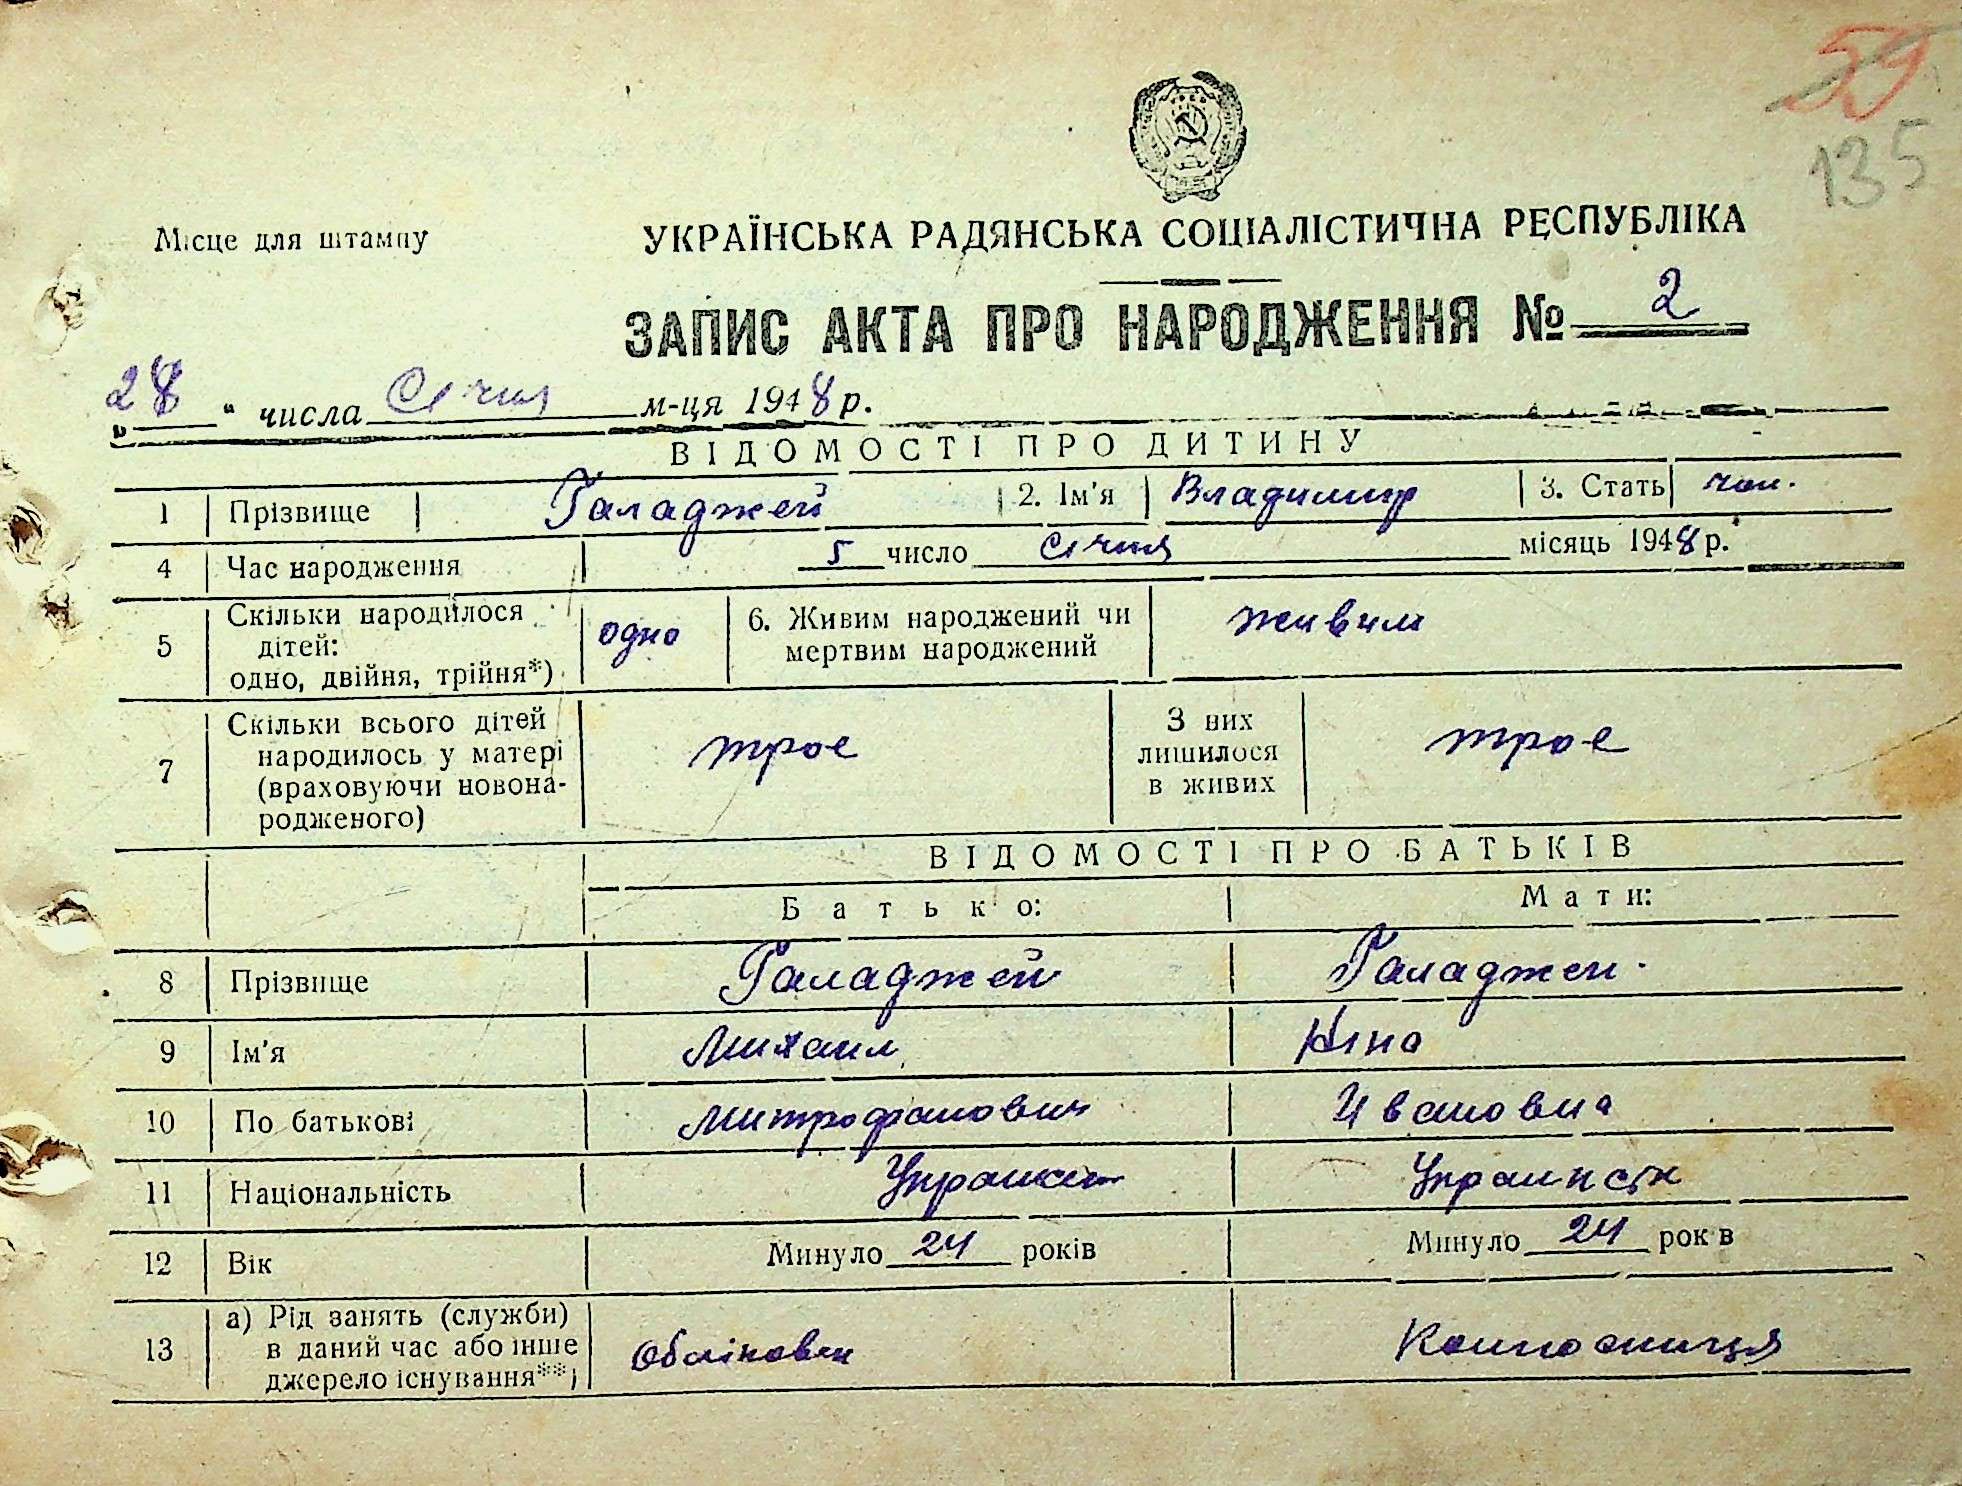 59
135
Місце для штампу
УКРАЇНСЬКА РАДЯНСЬКА СОЦІАЛІСТИЧНА РЕСПУБЛІКА
ЗАПИС АКТА ПРО НАРОДЖЕННЯ № 2
„28“ числа Січня м-ця 1948 р.
ВІДОМОСТІ ПРО ДИТИНУ
1 Прізвище Галаджей 2. Ім'я Владимир 3. Стать чол.
4 Час народження 5 число Січня місяць 1948 р.
5 Скільки народилося дітей: одно, двійня, трійня*) одно 6. Живим народжений чи мертвим народжений живим
7 Скільки всього дітей народилось у матері (враховуючи новонародженого) трое З них лишилося в живих трое
ВІДОМОСТІ ПРО БАТЬКІВ
Батько: Мати:
8 Прізвище Галаджей Галаджей
9 Ім'я Михаил Ніна
10 По батькові Митрофанович Ивановна
11 Національність Украинец
12 Вік Минуло 24 років Минуло 24 років
13 а) Рід занять (служби) в даний час або інше джерело існування**) Колгосниця